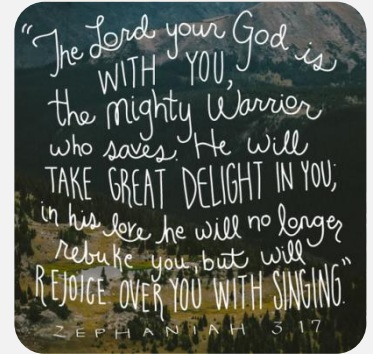 "The Lord your God is
WITH YOU,
the Mighty Warrior
who saves. He will
TAKE GREAT DELIGHT IN YOU;
in his love he will no longer
rebuke you, but will
REJOICE OVER YOU WITH SINGING."
ZEPHANIAH 3 17